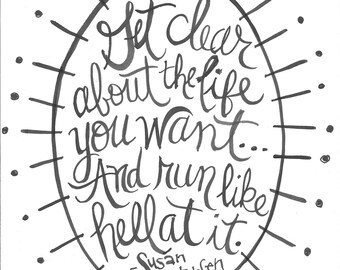 Get clear
about the life
you want...
And run like
hell at it.
Susan